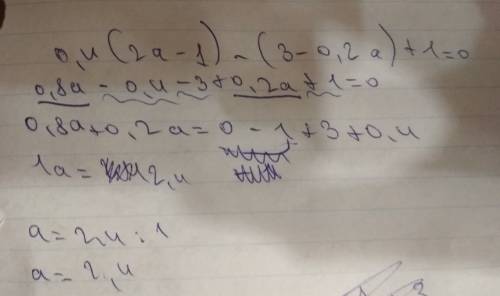 0,4(2a-1)-(3-0,2a)+1=0
0,8a-0,4-3+0,2a+1=0
0,8a+0,2a=0-1+3+0,4
1a=2,4
a=2,4:1
a=2,4